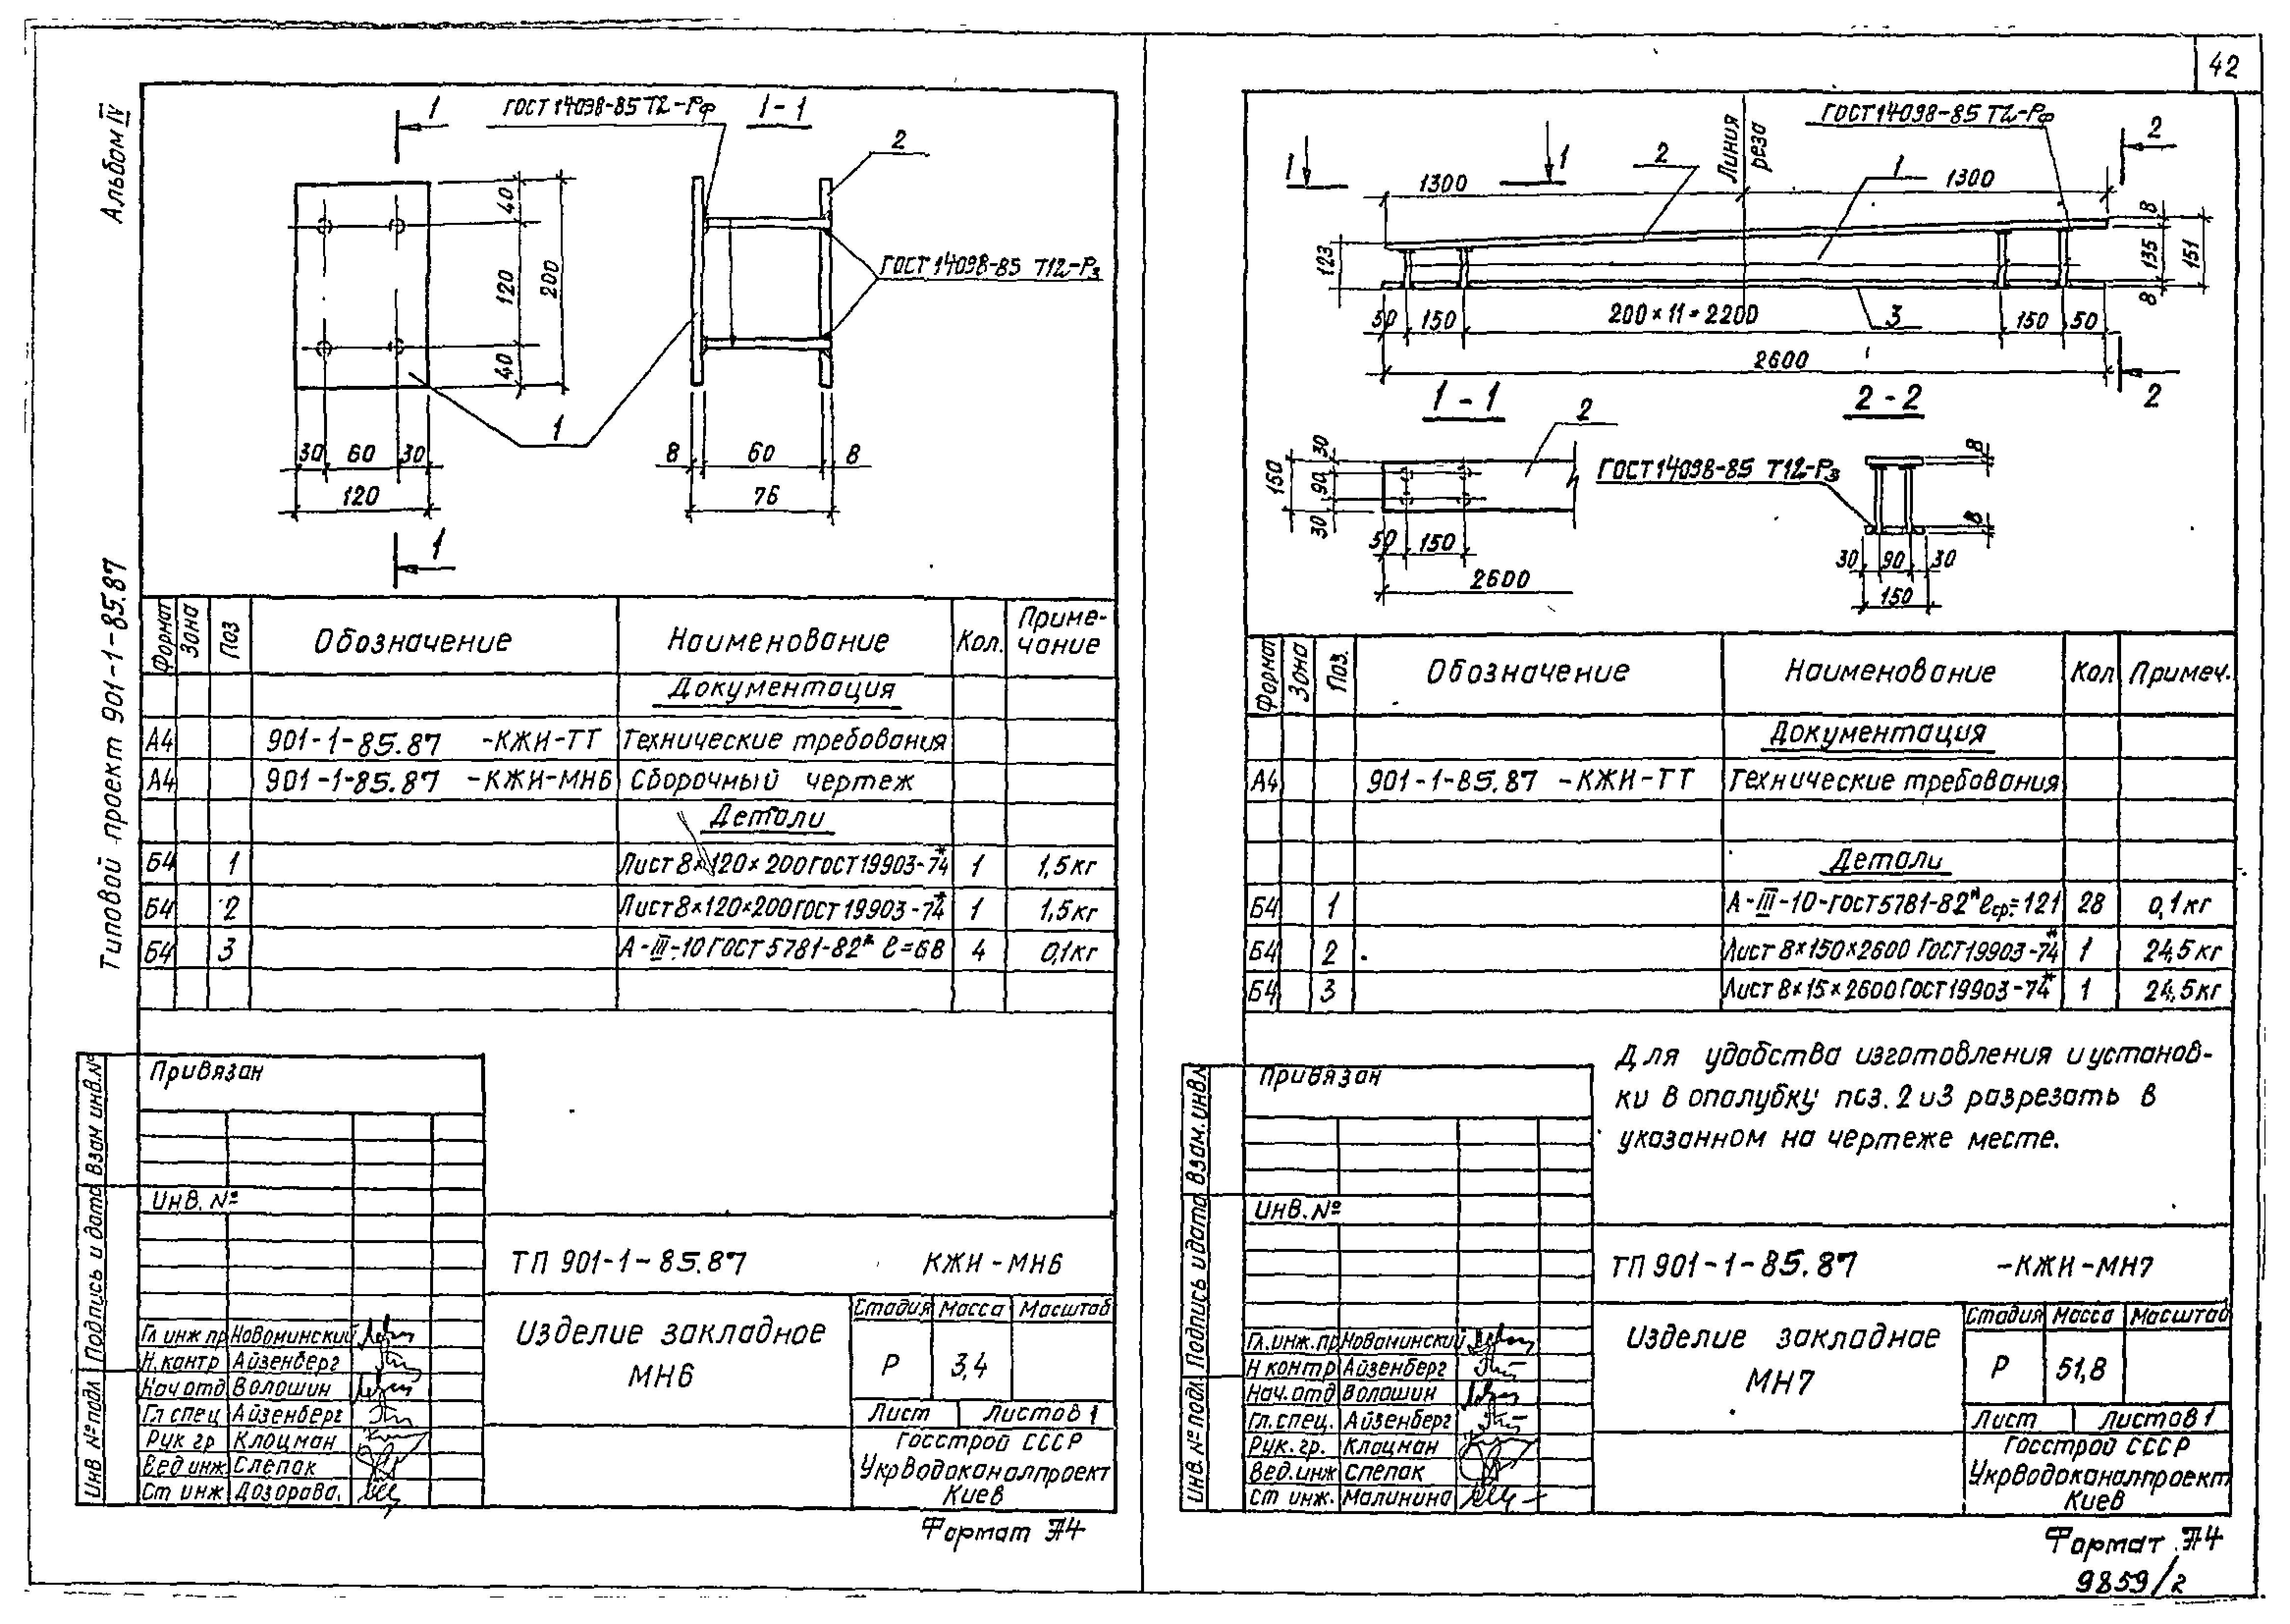 42
Альбом IV
Типовой проект 901-1-85.87
1
ГОСТ 14098-85 Т2-Рф
1-1
2
40
120
200
40
ГОСТ 14098-85 Т12-Рз
1
30 60 30
120
8 60 8
76
1
Формат Зона Поз Обозначение Наименование Кол. Приме-
чание
Документация
А4 901-1-85.87 -КЖИ-ТТ Технические требования
А4 901-1-85.87 -КЖИ-МН6 Сборочный чертеж
Детали
Б4 1 Лист 8×120×200 ГОСТ 19903-74* 1 1,5кг
Б4 2 Лист 8×120×200 ГОСТ 19903-74* 1 1,5кг
Б4 3 А-III-10 ГОСТ 5781-82* ℓ=68 4 0,1кг
Привязан
Инв. №
Взам инв.№
Подпись и дата
Инв № подл
ТП 901-1-85.87 КЖИ-МН6
Изделие закладное
МН6
Стадия Масса Масштаб
Р 3,4
Лист Листов 1
Госстрой СССР
Укрводоканалпроект
Киев
Гл инж пр Новоминский
Н.контр Айзенберг
Нач отд Волошин
Гл спец Айзенберг
Рук гр Клоцман
Вед инж Слепак
Ст инж Дозорова.
Формат А4
ГОСТ 14098-85 Т2-Рф
Линия
реза
1 1 2 1 2
1300 1300
123
8
135
151
8
50 150 200×11=2200 3 150 50
2600
2
1-1
2-2
2
30
150
90
30
50 150
2600
ГОСТ 14098-85 Т12-Рз
8
8
30 90 30
150
Формат Зона Поз. Обозначение Наименование Кол Примеч.
Документация
А4 901-1-85.87 -КЖИ-ТТ Технические требования
Детали
Б4 1 А-III-10-ГОСТ 5781-82* ℓср=121 28 0,1кг
Б4 2 Лист 8×150×2600 ГОСТ 19903-74* 1 24,5кг
Б4 3 Лист 8×15×2600 ГОСТ 19903-74* 1 24,5кг
Для удобства изготовления и установ-
ки в опалубку поз. 2 и 3 разрезать в
указанном на чертеже месте.
Привязан
Инв. №
Взам. инв.№
Подпись и дата
Инв. № подл.
ТП 901-1-85.87 -КЖИ-МН7
Изделие закладное
МН7
Стадия Масса Масштаб
Р 51,8
Лист Листов 1
Госстрой СССР
Укрводоканалпроект
Киев
Гл. инж. пр Новоминский
Н контр Айзенберг
Нач. отд Волошин
Гл. спец. Айзенберг
Рук. гр. Клоцман
Вед. инж Слепак
Ст инж. Малинина
Формат А4
9859/2